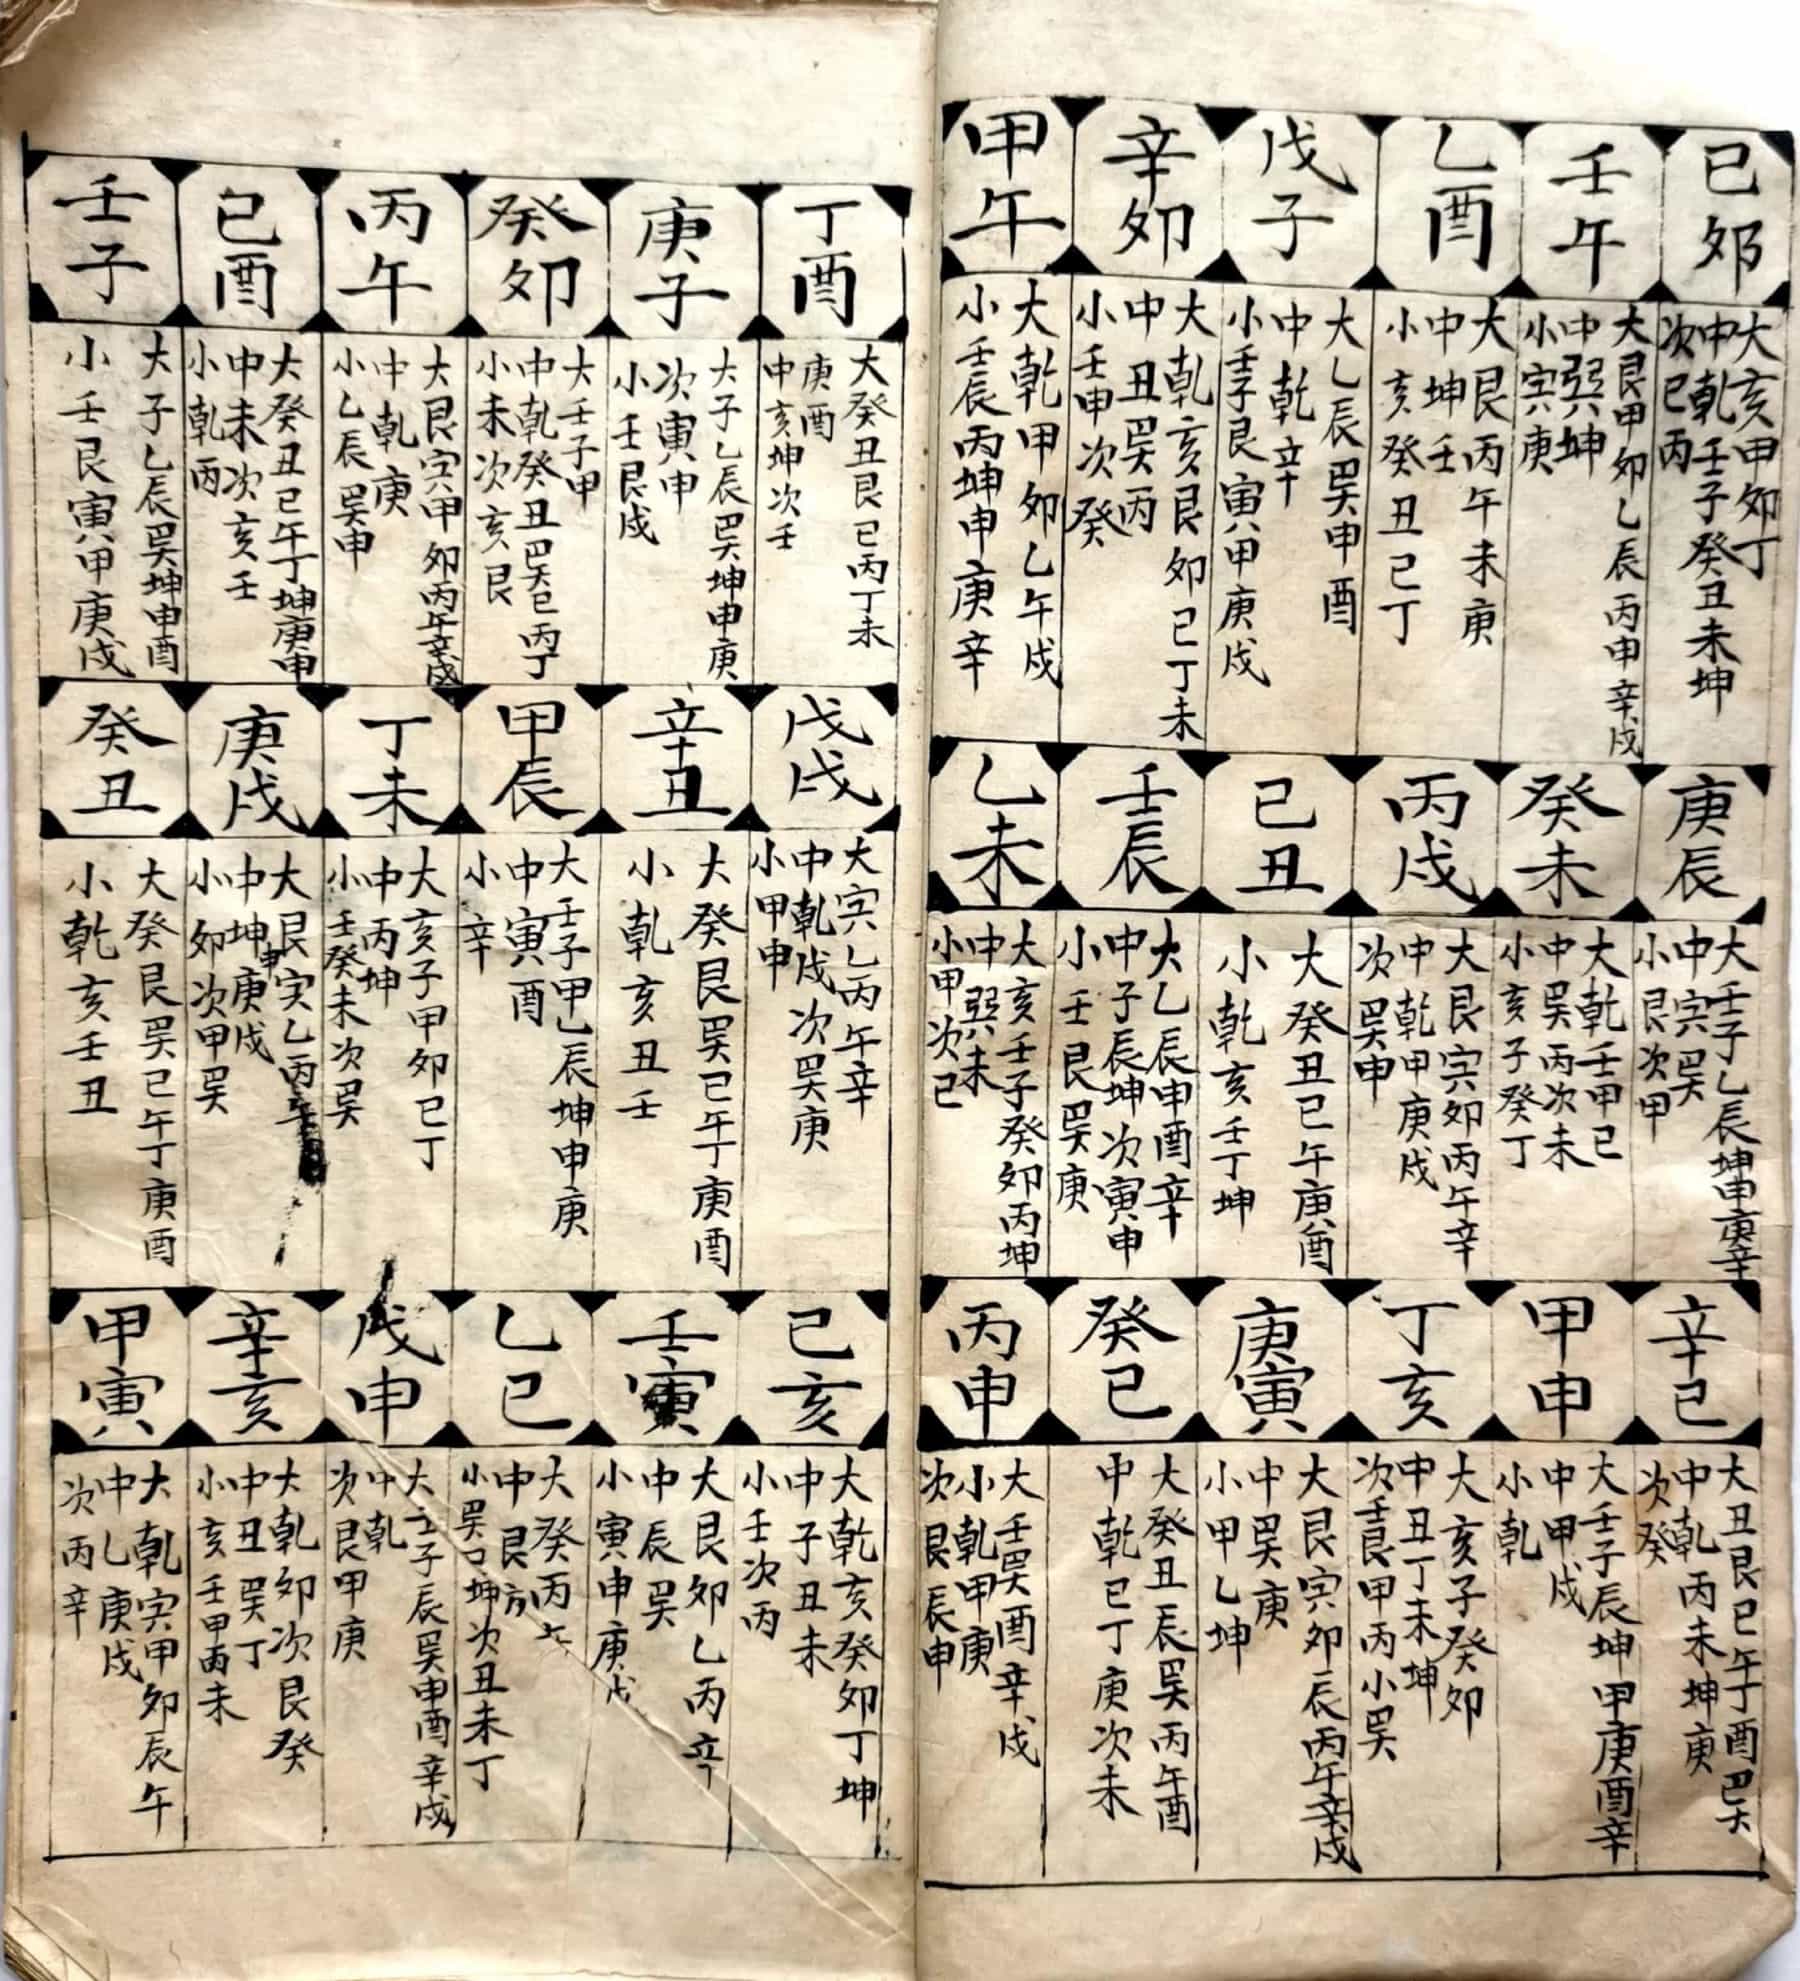 己卯
大亥甲卯丁
中乾壬子癸丑未坤
次巳丙
庚辰
大壬子乙辰坤申庚辛
中㝉巽
小艮次甲
辛巳
大丑艮巳午丁酉巽
中乾丙未坤庚
次癸
壬午
大艮甲卯乙辰丙申辛戌
中巽坤
小㝉庚
癸未
大乾壬甲巳
中巽丙次未
小亥子癸丁
甲申
大壬子辰坤甲庚酉辛
中甲戌
小乾
乙酉
大艮丙午未庚
中坤壬
小亥癸丑己丁
丙戌
大艮㝉卯丙午辛
中乾甲庚戌
次巽申
丁亥
大亥子癸卯
中丑丁未坤
次壬艮甲丙小巽
戊子
大乙辰巽申酉
中乾辛
小壬子艮寅甲庚戌
己丑
大癸丑巳午庚酉
小乾亥壬丁坤
庚寅
大艮㝉卯辰丙午辛戌
中巽庚
小甲乙坤
辛卯
大乾亥艮卯巳丁未
中丑巽丙
小壬申次癸
壬辰
大乙辰申酉辛
中子辰坤次寅申
小壬艮巽庚
癸巳
大癸丑辰巽丙午酉
中乾巳丁庚次未
甲午
大乾甲卯乙午戌
小壬辰丙坤申庚辛
乙未
大亥壬子癸卯丙坤
中巽未
小甲次巳
丙申
大壬巽酉辛戌
小乾甲庚
次艮辰申
丁酉
大癸丑艮巳丙丁未
庚酉
中亥坤次壬
戊戌
大㝉乙丙午辛
中乾戌次巽庚
小甲申
己亥
大乾亥癸卯丁坤
中子丑未
小壬次丙
庚子
大子乙辰巽坤申庚
次寅申
小壬艮戌
辛丑
大癸艮巽巳午丁庚酉
小乾亥丑壬
壬寅
大艮卯乙丙辛
中辰巽
小寅申庚戌
癸卯
大壬子甲
中乾癸丑巽巳丙丁
小未次亥艮
甲辰
大壬子甲乙辰坤申庚
中寅酉
小辛
乙巳
大癸丙
中艮方
小巽坤次丑未丁
丙午
大艮㝉甲卯丙午辛戌
中乾庚
小乙辰巽申
丁未
大亥子甲卯巳丁
中丙坤
小壬癸未次巽
戊申
大壬子辰巽申酉辛戌
中乾
次艮甲庚
己酉
大癸丑巳午丁坤庚申
中未次亥壬
小乾丙
庚戌
大艮㝉乙丙午
中坤申庚戌
小卯次甲巽
辛亥
大乾卯次艮癸
中丑巽丁
小亥壬甲丙未
壬子
大子乙辰巽坤申酉
小壬艮寅甲庚戌
癸丑
大癸艮巽巳午丁庚酉
小乾亥壬丑
甲寅
大乾㝉甲卯辰午
中乙庚戌
次丙辛